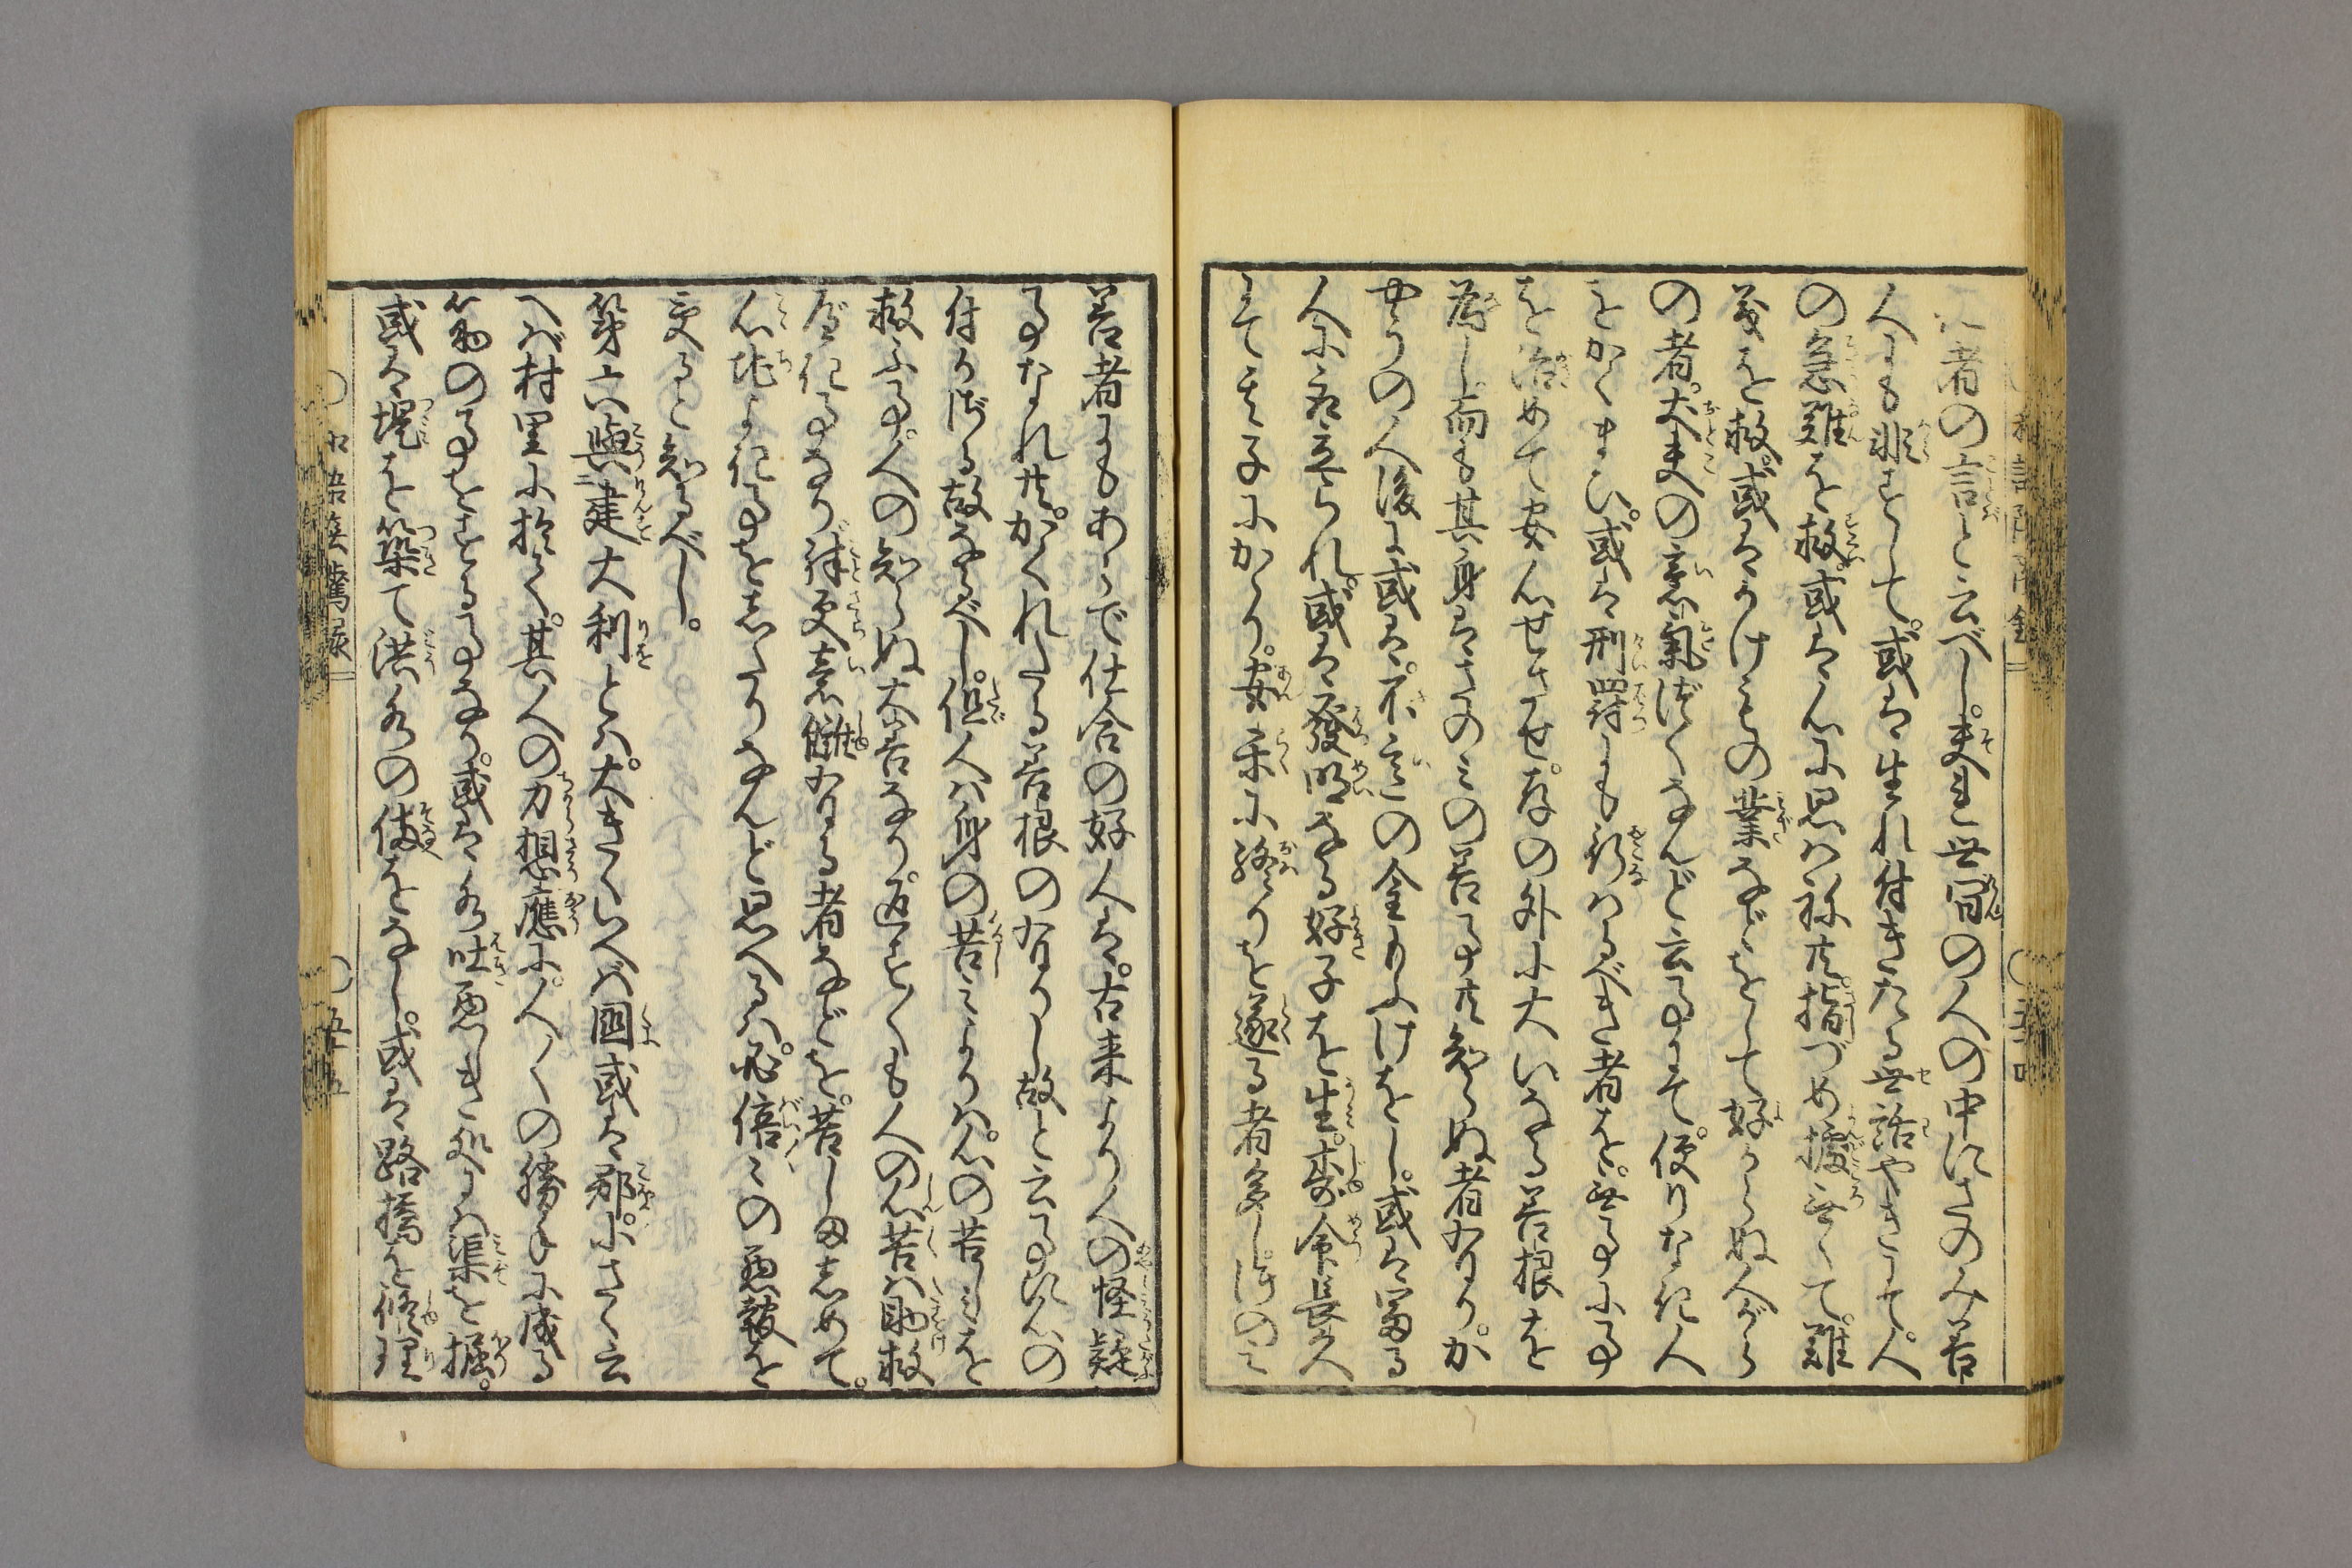 者の言と云べし。夫世間の人の中にさのみ善
人にも非ずして。或は生れ付きたる世話やきにて。人
の急難を救。或は人に思はれ。指づめ據無くて。難
義を救。或はうけこの業などをして好からぬ人がら
の者。丈夫の意氣づくなんど云事にて。便りなき人
をかくまい。或は刑罸にも行はるべき者を。無事に事
を治めて安心せさせ。存の外に大いなる善根を
為し而も其身はさのみの善事共知らぬ者有り。か
やうの人後に或は。不意の金もふけをし。或は富る
人に取立られ。或は發明なる好子を生。或は命長久
にて其子にかゝり。安楽に終りを遂る者多し。
善者にもあらで仕合の好人は。古来より人の怪疑
事なれ共。かくれたる善根の有りし故と云事に心の
付かざる故なるべし。但人は身の苦みよりは。心の苦みを
救ふ事。人の知らぬ大善なり。返すくも人の心苦は助救
べき事なり。殊更意雠有る者などを。苦しましめて。
心地よき事をしたりなんど思へるは。一倍の悪報を
受ること知るべし。
第六興建大利とは。大きくいへば國或は郡。小さく云
へば村里に於て。其人の力想應に。人〳〵の勝手に成る
筋の事をする事なり。或は水吐悪き処には渠を掘。
或は堤を築て洪水の備をなし。或は路橋を修理